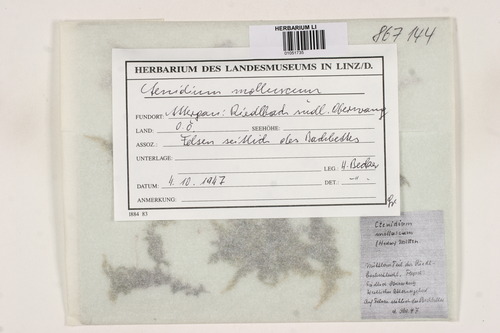 HERBARIUM LI
01051735
867144
HERBARIUM DES LANDESMUSEUMS IN LINZ/D.
Ctenidium molluscum
FUNDORT: Attergau: Riedlbach südl. Oberwang
LAND: O.Ö. SEEHÖHE:
ASSOZ.: Felsen seitlich des Bachbettes
UNTERLAGE:
LEG.: H. Becker
DATUM: 4.10.1947 DET.: -"-
ANMERKUNG:
1884 83
Ctenidium
molluscum
(Hedw.) Mitten.
Mittlerer Teil des Riedl-
südlich Oberwang
Auf Felsen seitlich des Bachbettes
4. Okt. 47